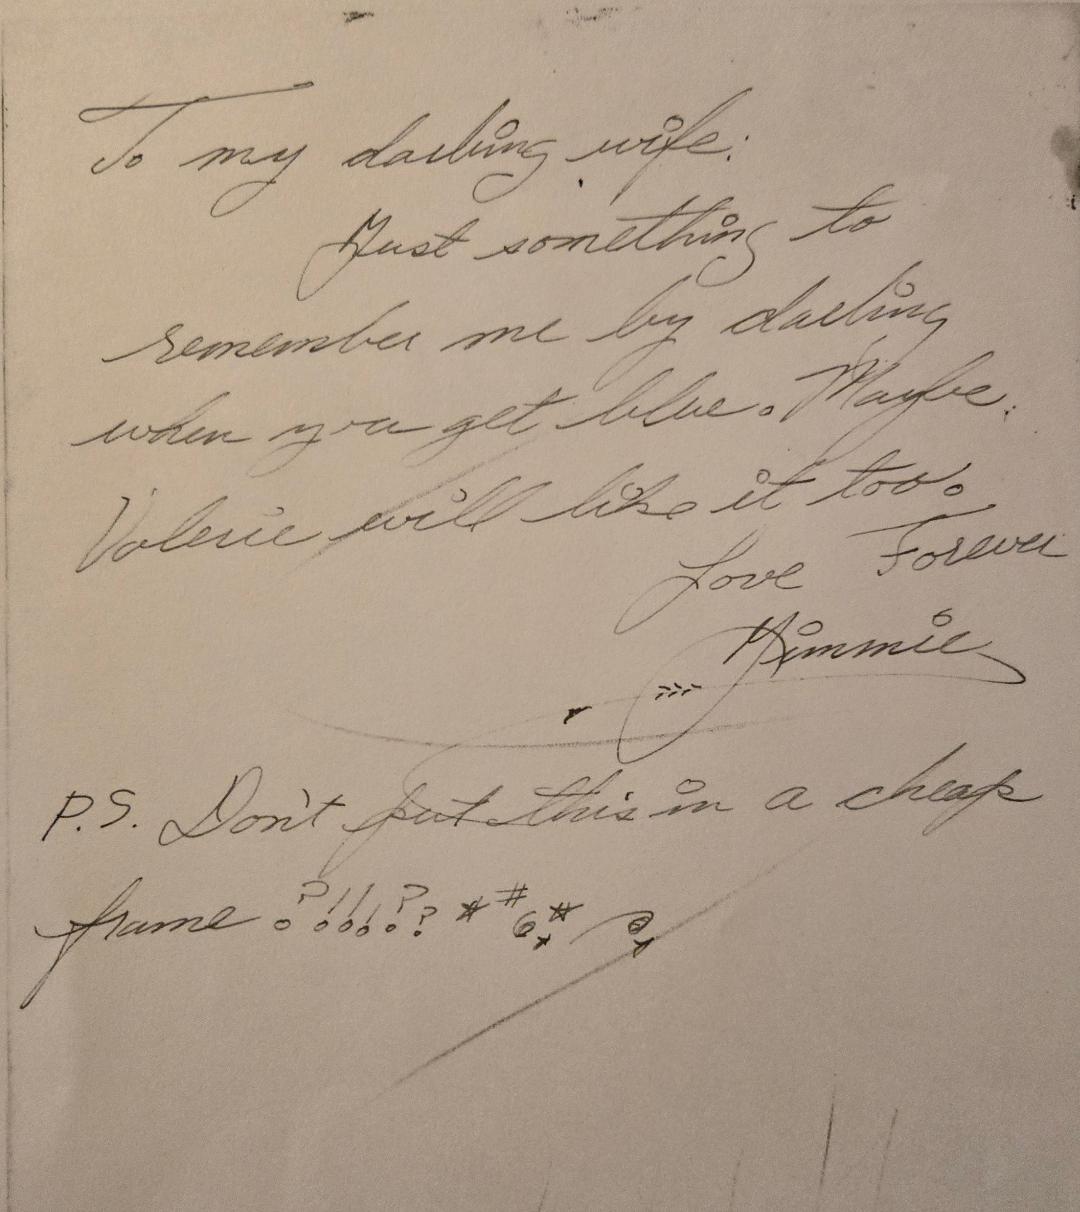 To my darling wife:
Just something to
remember me by darling
when you get blue. Maybe
Valerie will like it too.
Love Forever
Jimmie
P.S. Don't put this in a cheap
frame ?!!!?? * # 6 *